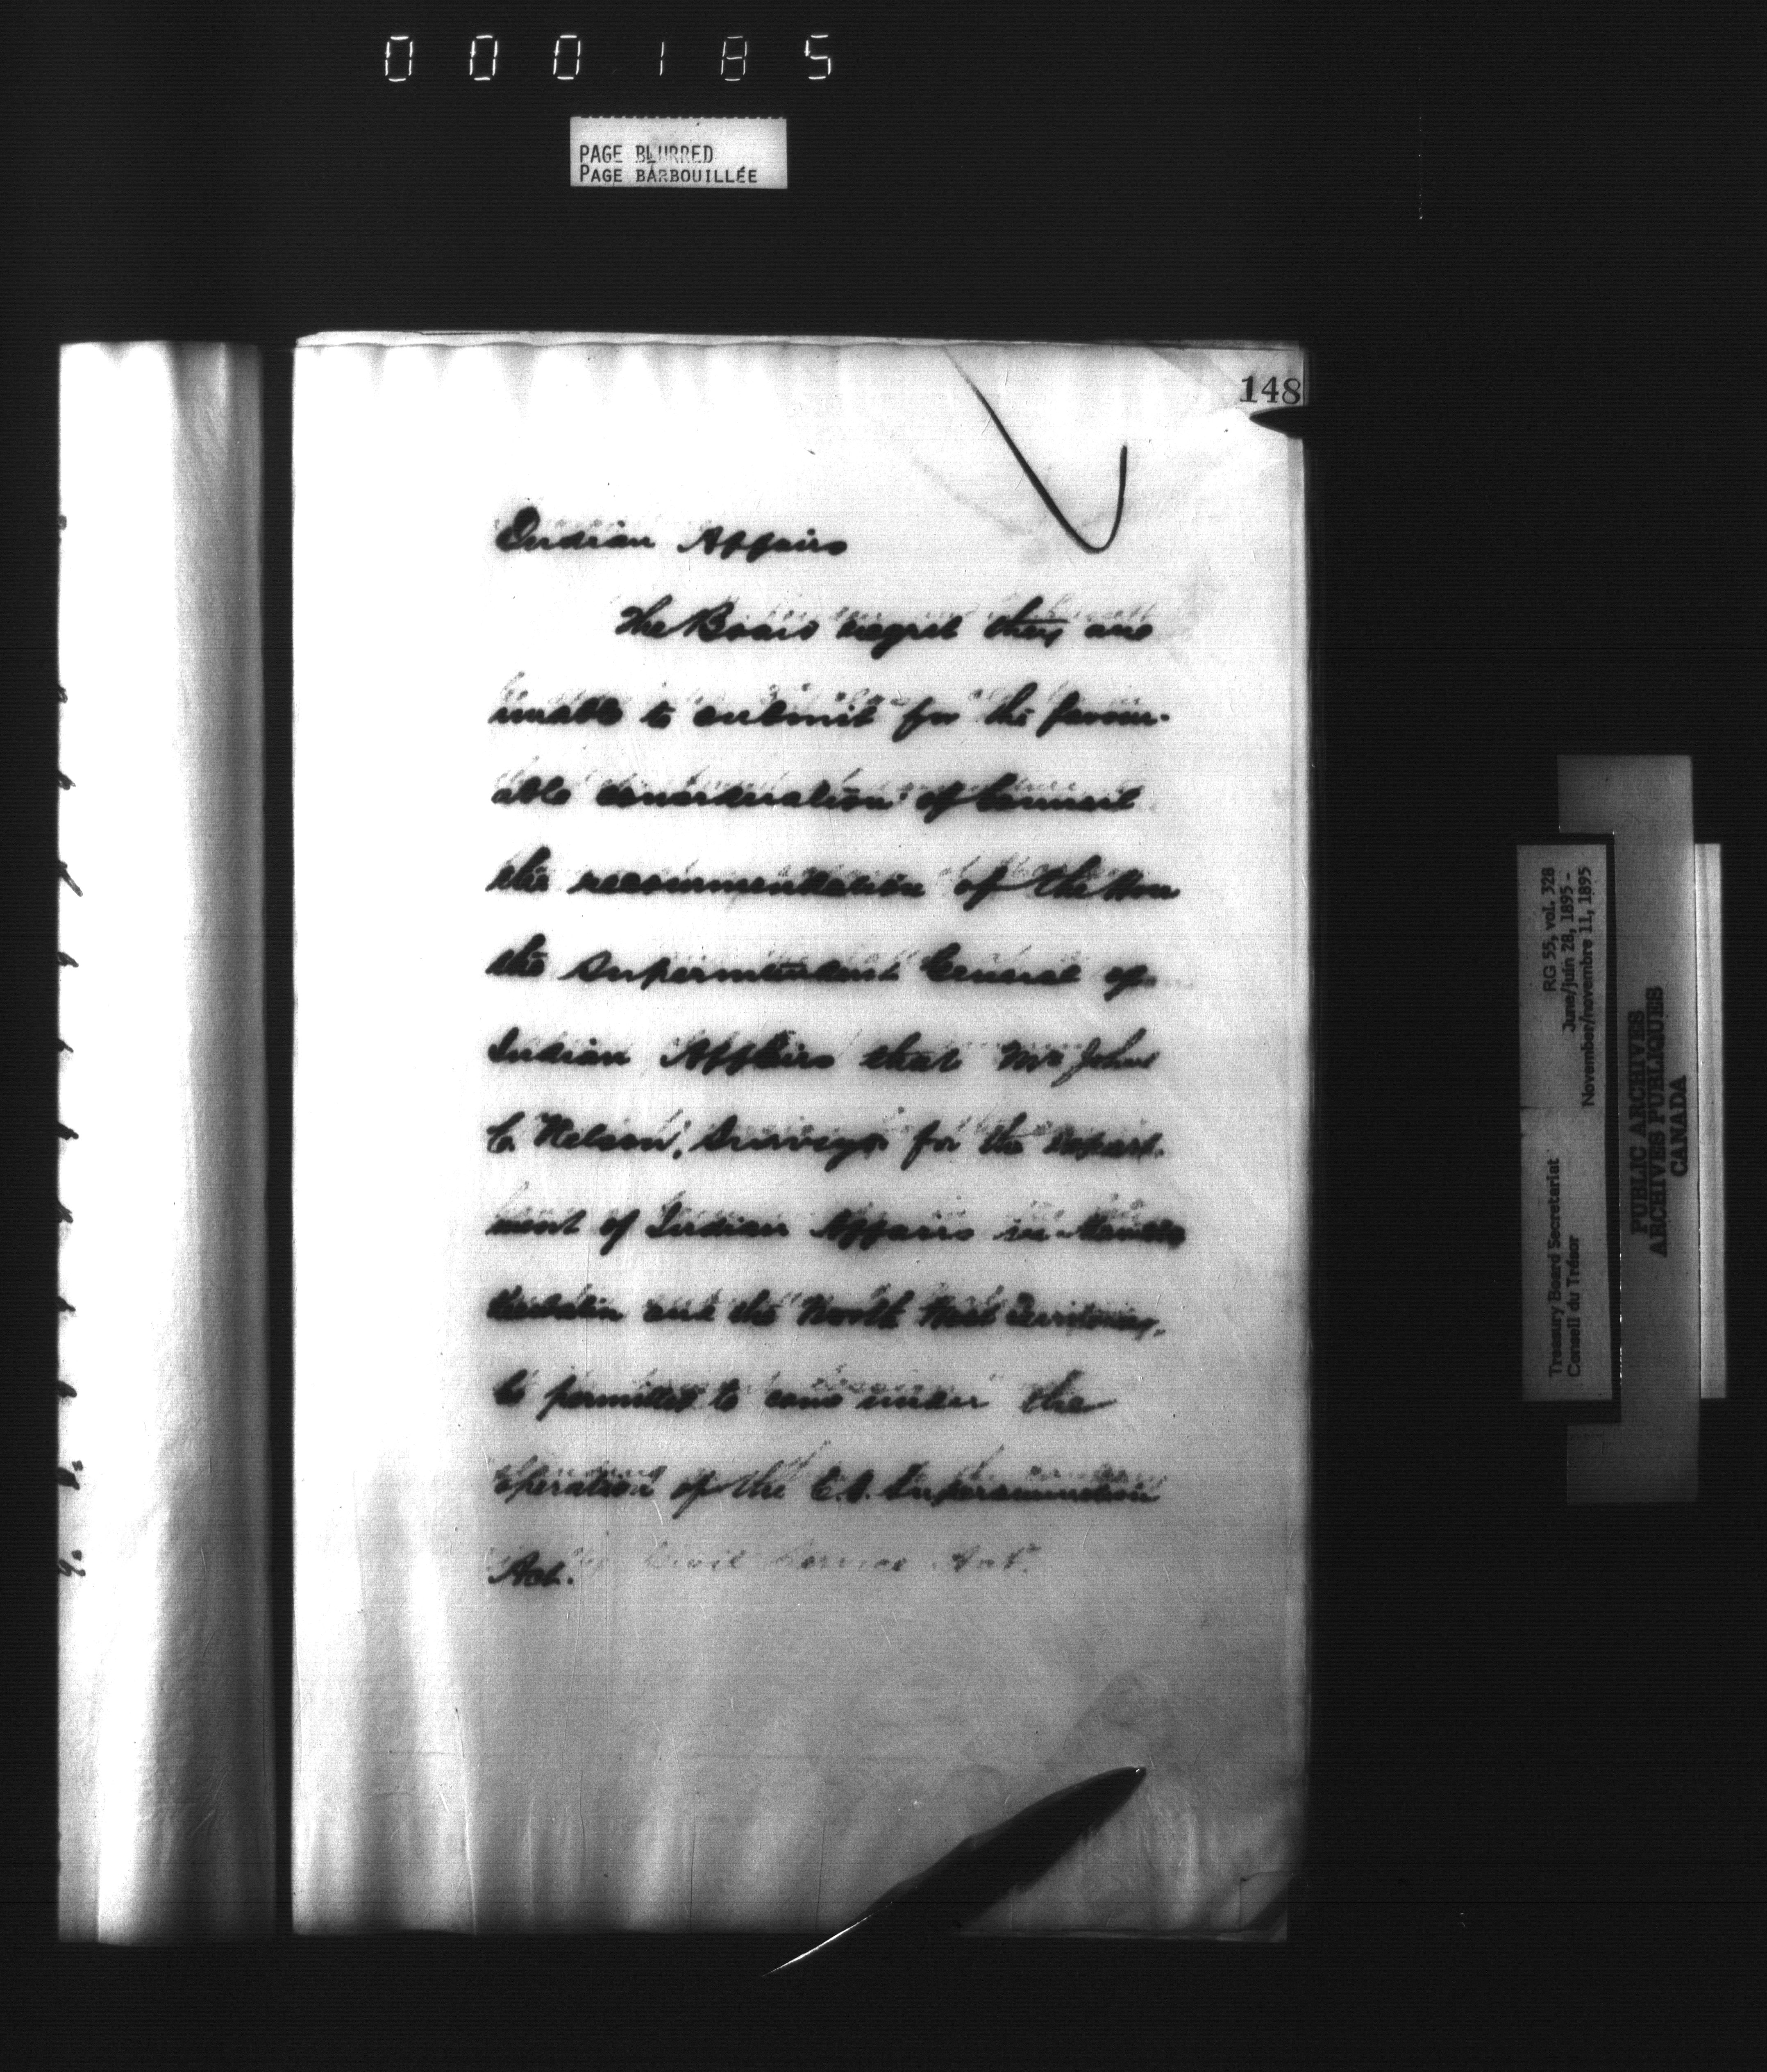 000185
PAGE BLURRED
PAGE BARBOUILLÉE
148
Indian Affairs
The Board regret they are
unable to submit for the favour-
able consideration of Council
the recommendation of the Hon
the Superintendent General of
Indian Affairs that Mr John
C. Nelson, Surveyor for the Depart-
ment of Indian Affairs in Manitoba
and the North West Territories,
be permitted to come under the
operation of the C.S. Superannuation
Act.
Civil Service Act.
Treasury Board Secretariat RG 55, vol. 328
Conseil du Trésor June/juin 28, 1895 -
November/novembre 11, 1895
PUBLIC ARCHIVES
ARCHIVES PUBLIQUES
CANADA